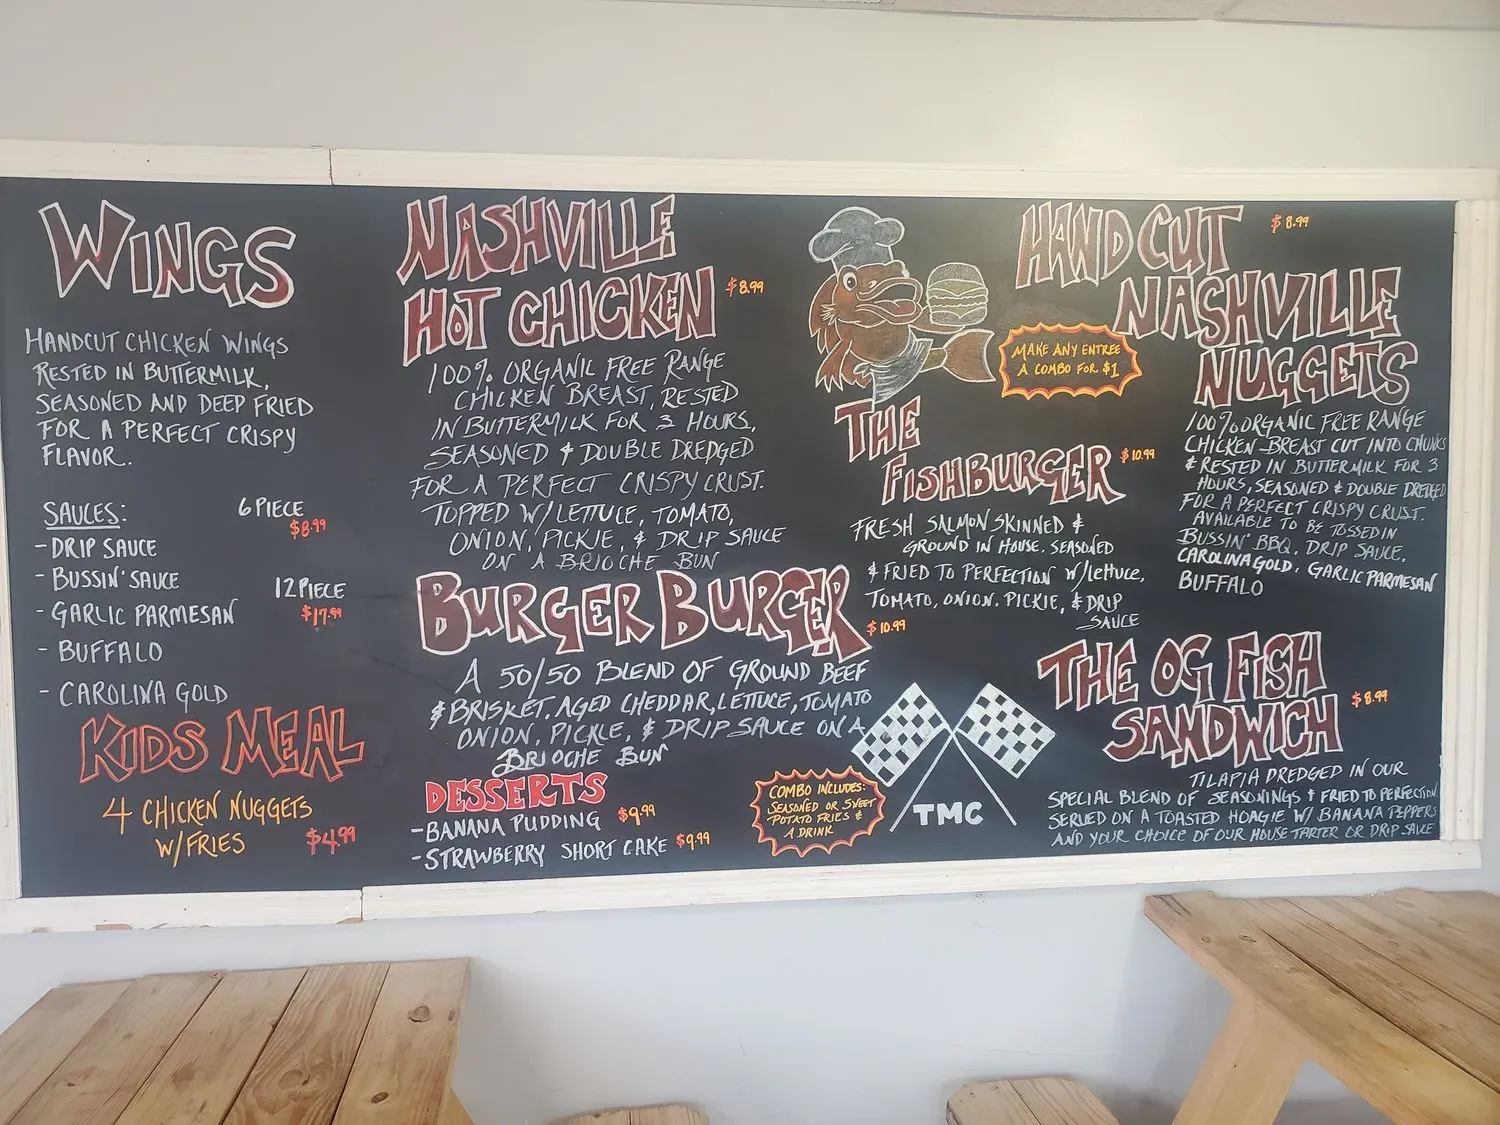 WINGS
HANDCUT CHICKEN WINGS
RESTED IN BUTTERMILK,
SEASONED AND DEEP FRIED
FOR A PERFECT CRISPY
FLAVOR.
SAUCES:
- DRIP SAUCE
- BUSSIN' SAUCE
- GARLIC PARMESAN
- BUFFALO
- CAROLINA GOLD
6 PIECE
$8.99
12 PIECE
$17.99
KIDS MEAL
4 CHICKEN NUGGETS
W/FRIES
$4.99
NASHVILLE
HOT CHICKEN $8.99
100% ORGANIC FREE RANGE
CHICKEN BREAST, RESTED
IN BUTTERMILK FOR 3 HOURS,
SEASONED & DOUBLE DREDGED
FOR A PERFECT CRISPY CRUST.
TOPPED W/ LETTUCE, TOMATO,
ONION, PICKIE, & DRIP SAUCE
ON A BRIOCHE BUN
BURGER BURGER $10.99
A 50/50 BLEND OF GROUND BEEF
& BRISKET. AGED CHEDDAR, LETTUCE, TOMATO
ONION, PICKLE, & DRIP SAUCE ON A
BRIOCHE BUN
DESSERTS
- BANANA PUDDING $9.99
- STRAWBERRY SHORT CAKE $9.99
COMBO INCLUDES:
SEASONED OR SWEET
POTATO FRIES &
A DRINK
MAKE ANY ENTREE
A COMBO FOR $1
THE
FISHBURGER $10.99
FRESH SALMON SKINNED &
GROUND IN HOUSE. SEASONED
& FRIED TO PERFECTION W/lettuce,
TOMATO, ONION. PICKIE, & DRIP
SAUCE
TMC
HAND CUT $8.99
NASHVILLE
NUGGETS
100% ORGANIC FREE RANGE
CHICKEN BREAST CUT INTO CHUNKS
& RESTED IN BUTTERMILK FOR 3
HOURS, SEASONED & DOUBLE DREDGED
FOR A PERFECT CRISPY CRUST.
AVAILABLE TO BE TOSSED IN
BUSSIN' BBQ, DRIP SAUCE,
CAROLINA GOLD, GARLIC PARMESAN
BUFFALO
THE OG FISH
SANDWICH $8.99
TILAPIA DREDGED IN OUR
SPECIAL BLEND OF SEASONINGS & FRIED TO PERFECTION.
SERVED ON A TOASTED HOAGIE W/ BANANA PEPPERS
AND YOUR CHOICE OF OUR HOUSE TARTER OR DRIP SAUCE